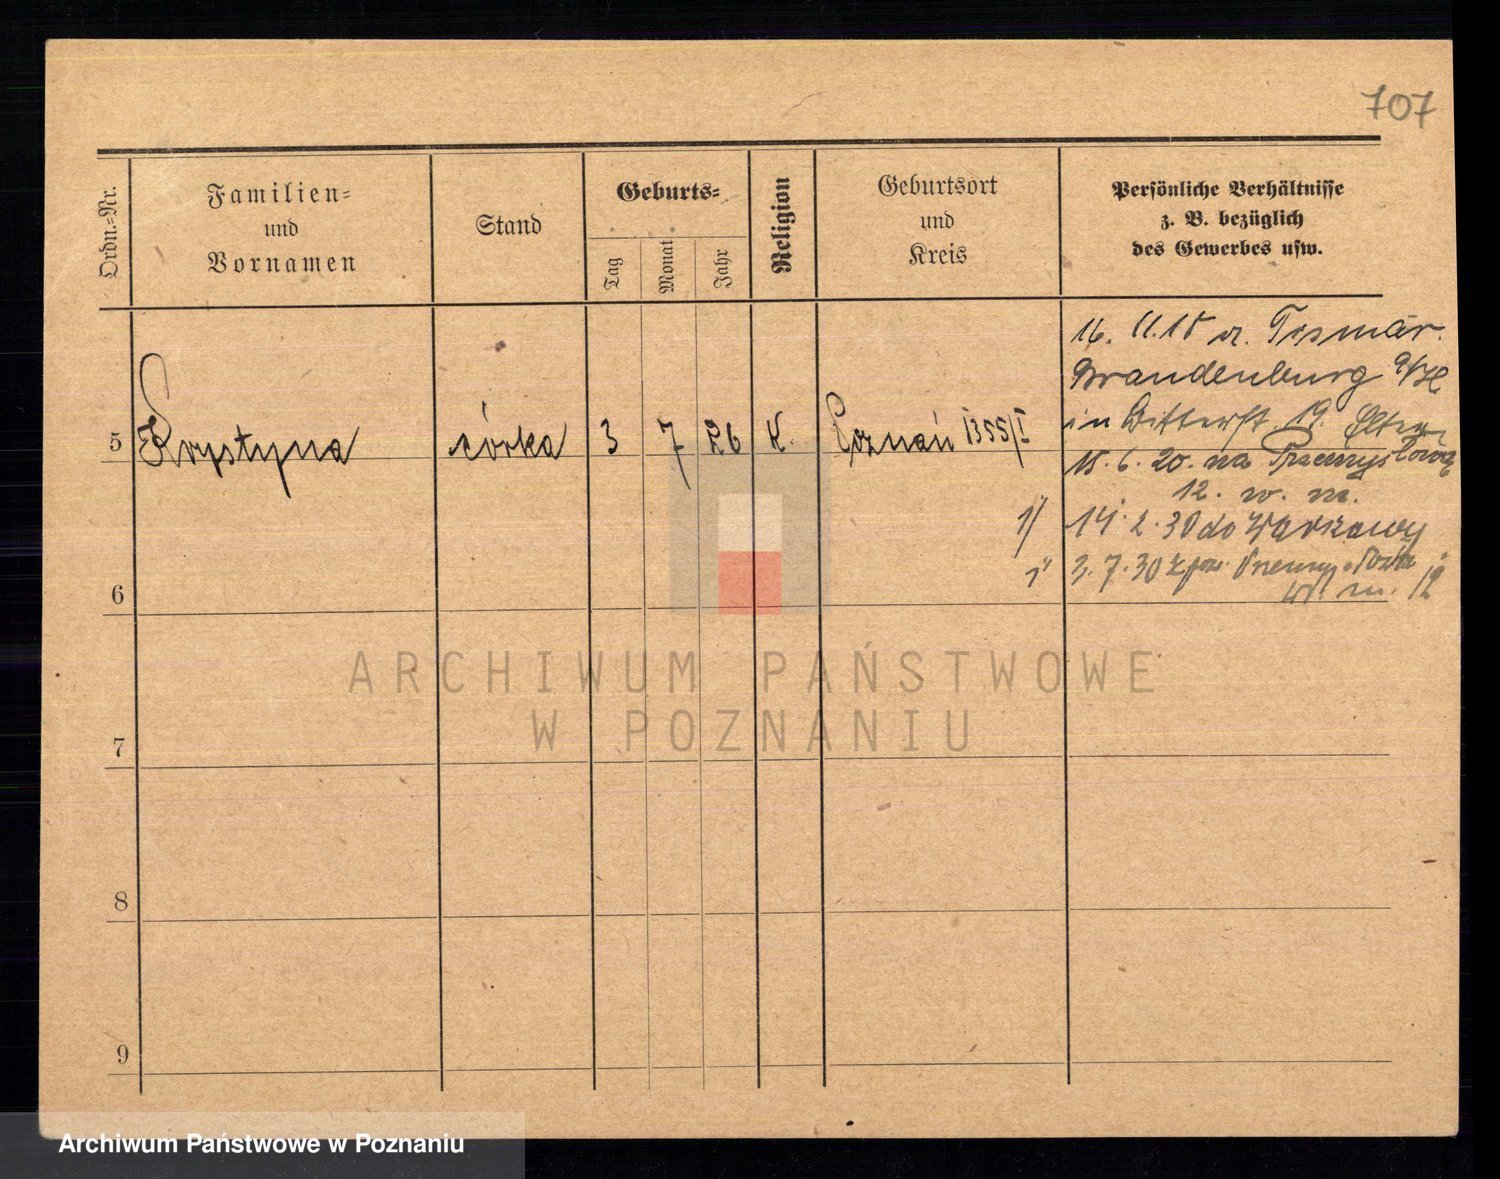 707
Ordn.-Nr.
Familien-
und
Vornamen
Stand
Geburts-
Tag
Monat
Jahr
Religion
Geburtsort
und
Kreis
Persönliche Verhältnisse
z. B. bezüglich
des Gewerbes usw.
16. 11.18 v.
Brandenburg a/H
in 19. Eltern
5 Krystyna córka 3 7 26 K. Poznań 1355/I
15. 6. 20. na Przemysłową
12. w. m.
1/ 14. 2. 30 do Warszawy
1/ 3. 7. 30 z
w. m. 12
6
7
8
9
ARCHIWUM PAŃSTWOWE
W POZNANIU
Archiwum Państwowe w Poznaniu